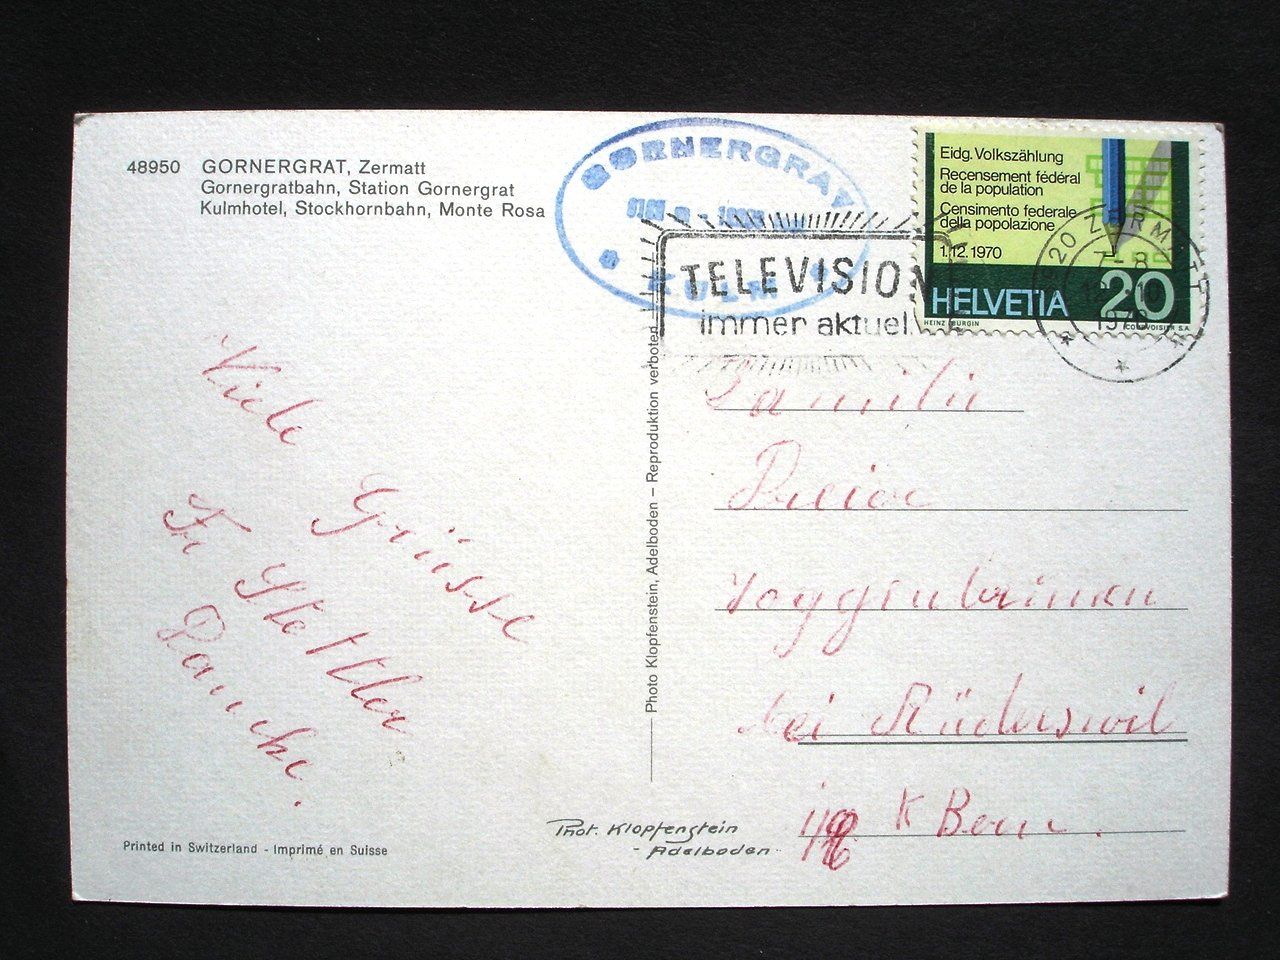 48950 GORNERGRAT, Zermatt
Gornergratbahn, Station Gornergrat
Kulmhotel, Stockhornbahn, Monte Rosa
GORNERGRAT
KULM
TELEVISION
immer aktuell
Eidg. Volkszählung
Recensement fédéral
de la population
Censimento federale
della popolazione
1.12.1970
HELVETIA 20
HEINZ BÜRGIN
COURVOISIER S.A.
3920 ZERMATT
7-8
1970
Viele
Grüsse
Fr. Stettler
Familie
bei Rüderswil
K Bern.
Photo Klopfenstein, Adelboden – Reproduktion verboten
Phot. Klopfenstein
- Adelboden
Printed in Switzerland - Imprimé en Suisse